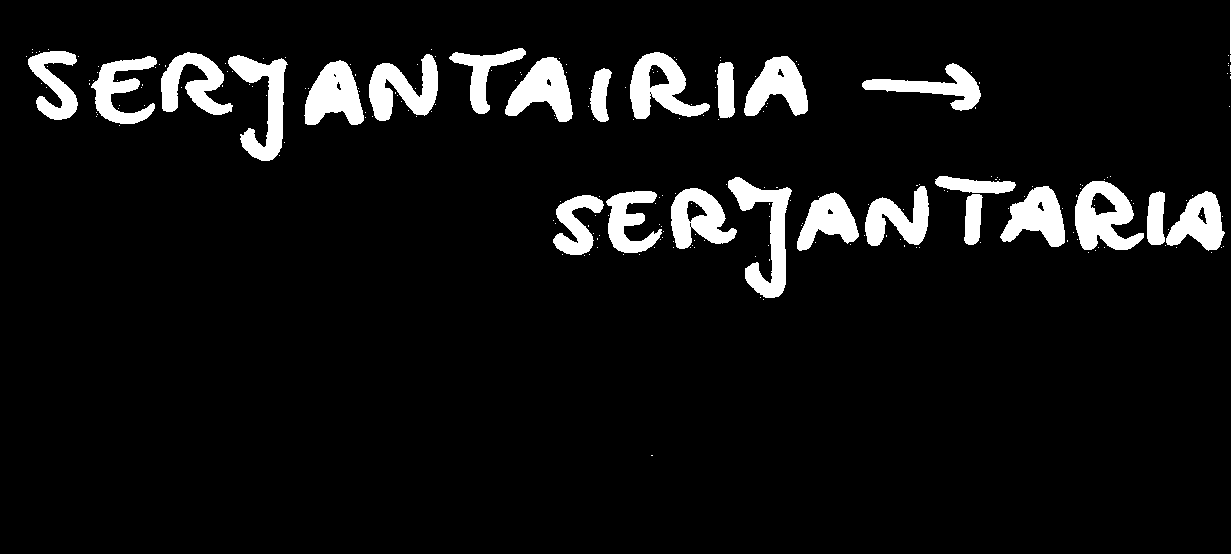 SERJANTAIRIA →
SERJANTARIA